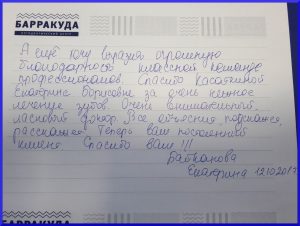 БАРРАКУДА
СТОМАТОЛОГИЧЕСКИЙ ЦЕНТР
БАРРАКУДА
А ещё хочу выразить огромную
благодарность классной команде
профессионалов. Спасибо Касаткиной
Екатерине Борисовне за очень нежное
лечение зубов. Очень внимательный,
ласковый доктор. Все объяснит, подскажет,
расскажет. Теперь ваш постоянный
клиент. Спасибо вам!!!
Екатерина 12.10.2017
БАРРАКУДА